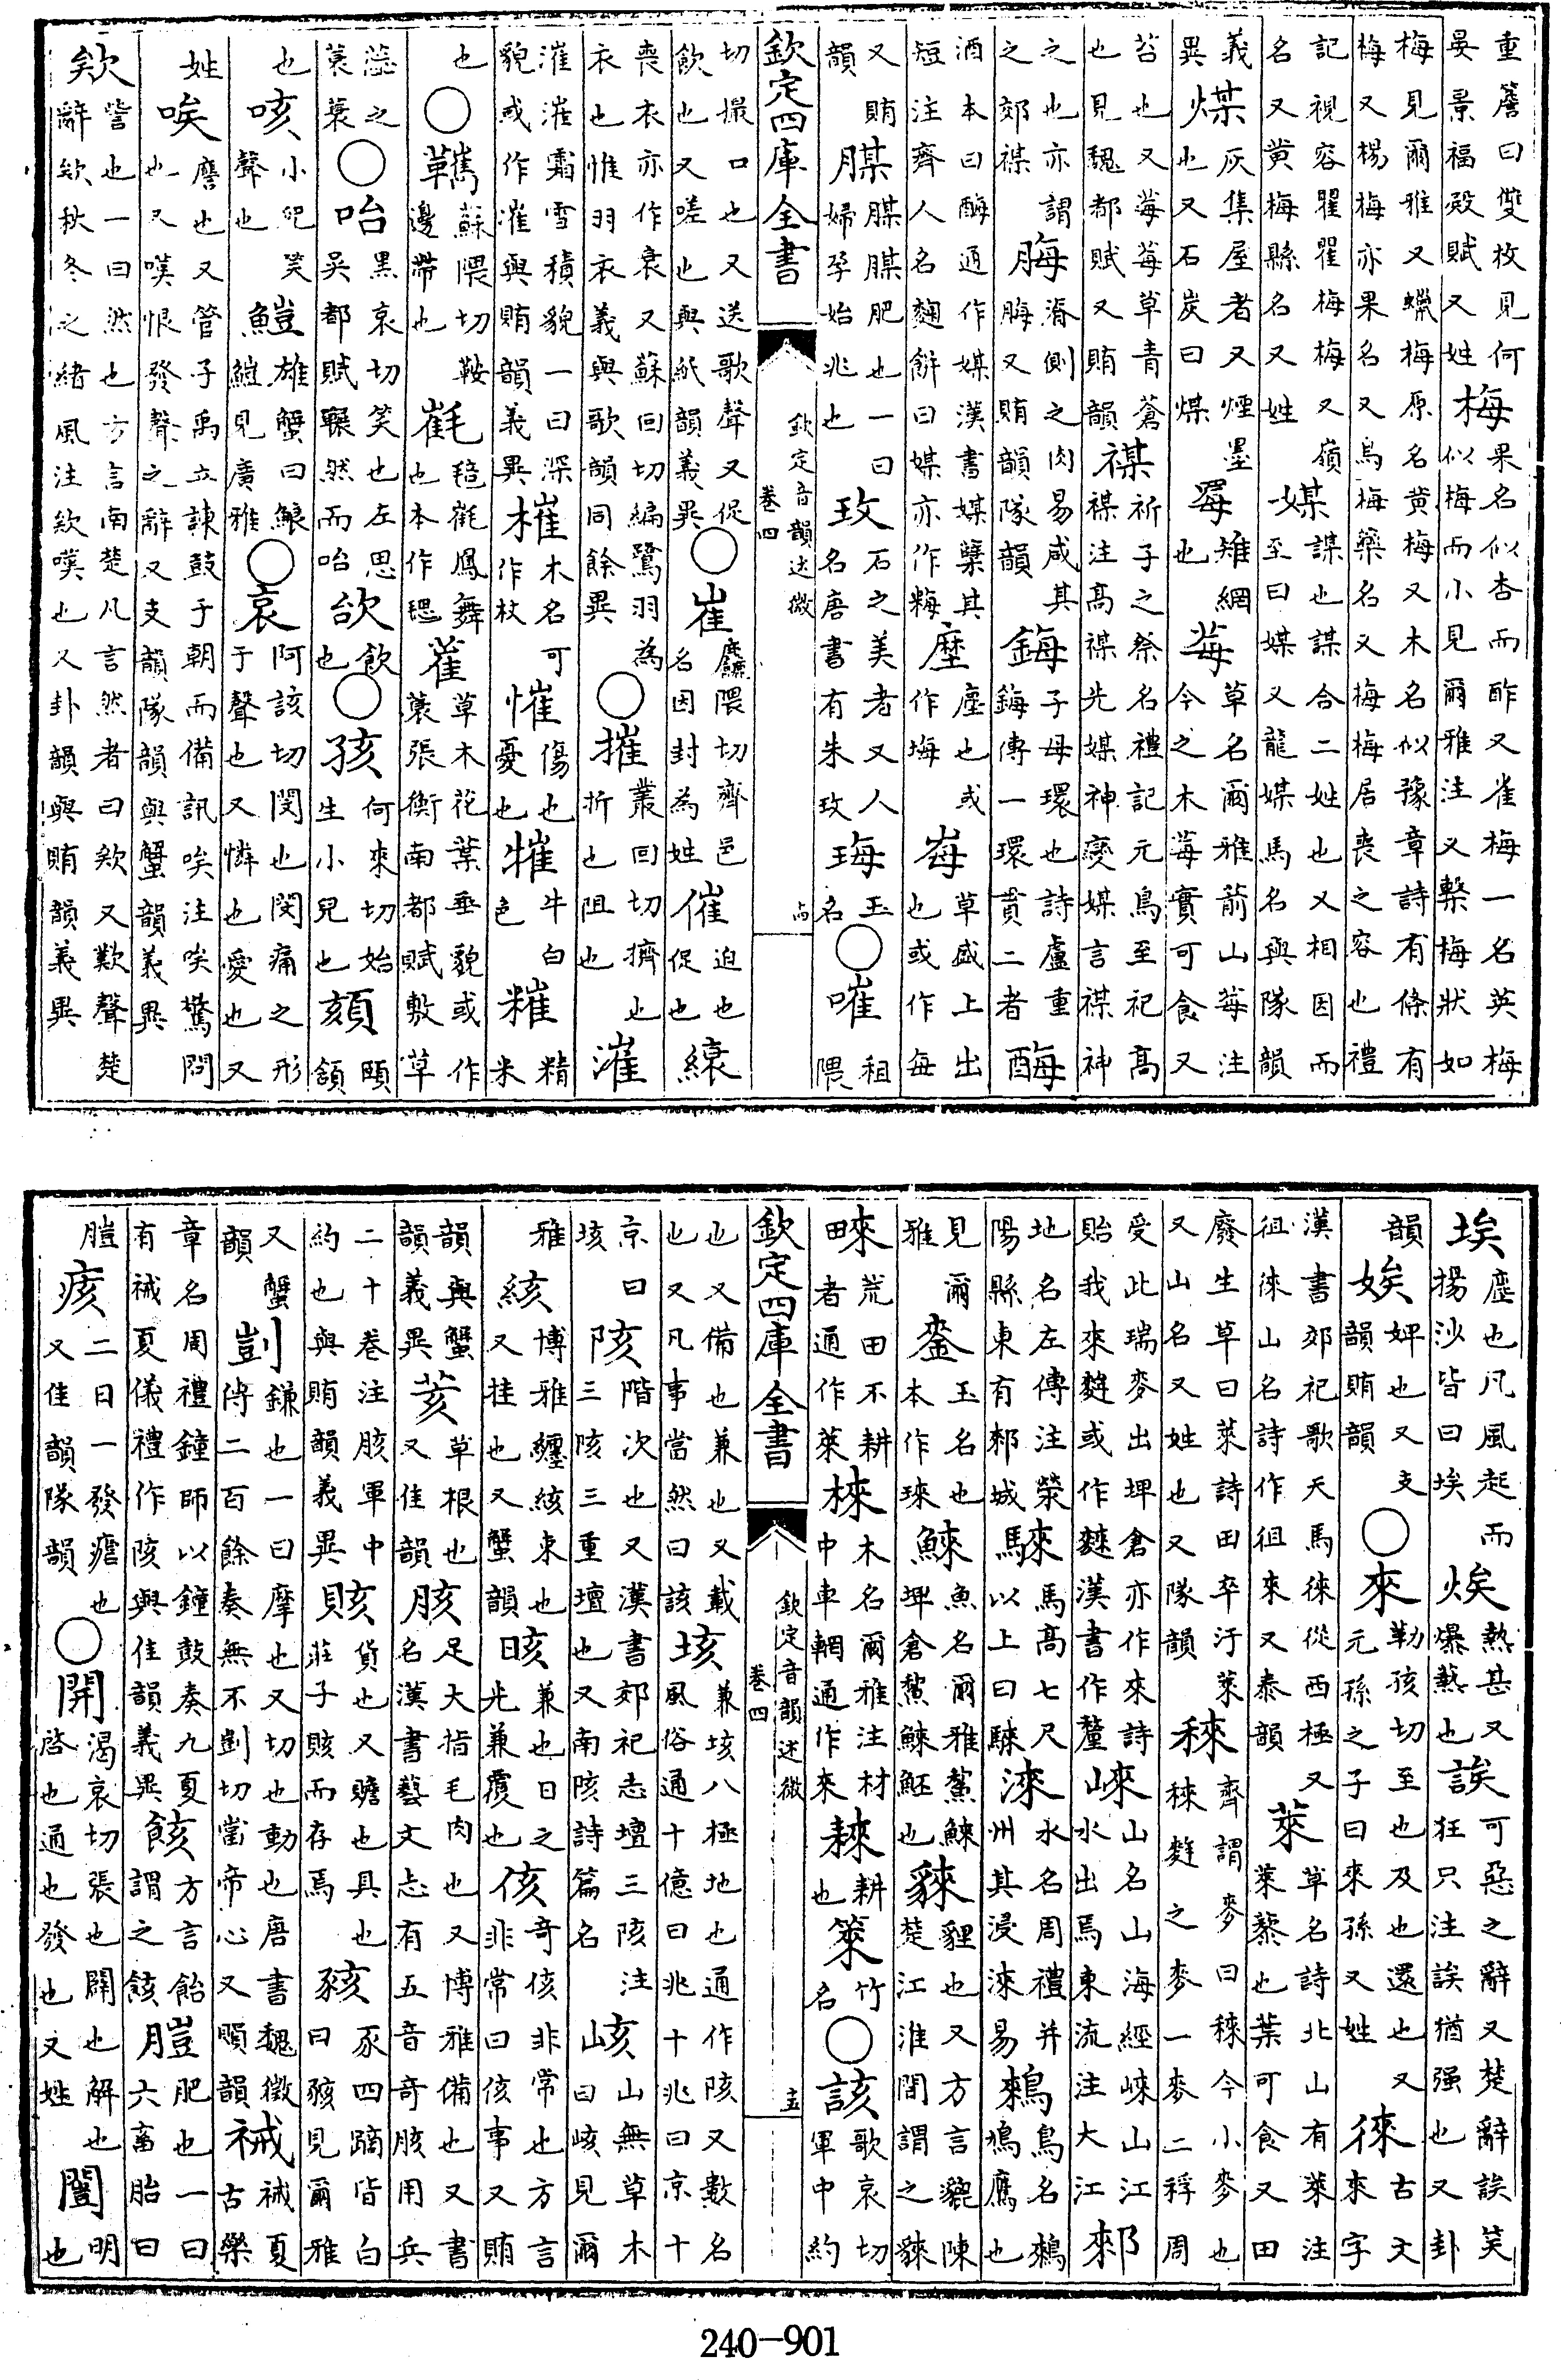 重簷曰雙枚見何晏景福殿賦又姓梅果名似杏而酢又雀梅一名英梅似梅而小見爾雅注又槼梅狀如
梅見爾雅又蠟梅原名黄梅又木名似豫章詩有條有梅又楊梅亦果名又烏梅藥名又梅梅居喪之容也禮
記視容瞿瞿梅梅又嶺名又黄梅縣名又姓媒謀也謀合二姓也又相因而至曰媒又龍媒馬名與隊韻
義異煤灰集屋者又煙墨也又石炭曰煤罞雉網也莓草名爾雅葥山莓注今之木莓實可食又
苔也又莓莓草青蒼也見魏都賦又賄韻禖祈子之祭名禮記元鳥至祀高禖注高禖先媒神變媒言禖神
之也亦謂之郊禖脢脊側之肉易咸其脢又賄韻隊韻鋂子母環也詩盧重鋂傳一環貫二者酶
酒本曰酶通作媒漢書媒糵其短注齊人名麴餅曰媒亦作䊈塺塵也或作塳草盛上出也或作每
又賄韻腜腜腜肥也一曰婦孕始兆也玫石之美者又人名唐書有朱玫珻玉名○嗺祖隈
欽定四庫全書 欽定音韻述微 卷四
切撮口也又送歌聲又促飲也又嗟也與紙韻義異○崔麤隈切齊邑名因封為姓催迫也促也縗
喪衣亦作衰又蘇回切編鷺羽為衣也惟羽衣義與歌韻同餘異○摧叢回切擠也折也阻也漼
漼漼霜雪積貌一曰深貌或作漼與賄韻義異槯木名可作杖慛傷也憂也㹐牛白色䊫精米
也○䪎蘇隈切鞍邊帶也毰鳳舞也本作毸草木花葉垂貌或作蓑張衡南都賦敷草
蕊之蓑蓑○咍黑哀切笑也左思吳都賦囅然而咍㰧飲也○孩何來切始生小兒也頦頤頷
也咳小兒笑聲也䱺雄蟹曰䱺見廣雅○哀阿該切閔也閔痛之形于聲也又憐也愛也又
姓唉譍也又管子禹立諫鼓于朝而備訊唉注唉驚問也又嘆恨發聲之辭又支韻隊韻與蟹韻義異
欸訾也一曰然也方言南楚凡言然者曰欸又歎聲楚辭欸秋冬之緒風注欸嘆也又卦韻與賄韻義異
埃塵也凡風起而揚沙皆曰埃焲熱甚又爆熱也誒可惡之辭又楚辭誒笑狂只注誒猶强也又卦
韻娭婢也又支韻賄韻○來勒孩切至也及也還也又元孫之子曰來孫又姓徠古文來字
漢書郊祀歌天馬徠從西極又徂徠山名詩作徂來又泰韻萊草名詩北山有萊注萊藜也葉可食又田
廢生草曰萊詩田卒汙萊又山名又姓也又隊韻秾齊謂麥曰秾今小麥也秾麰之麥一麥二稃周
受此瑞麥出埤倉亦作來詩貽我來麰或作䅘漢書作釐崍山名山海經崍山江水出焉東流注大江郲
地名左傳注滎陽縣東有郲城騋馬高七尺以上曰騋淶水名周禮并州其浸淶易鶆鳥名鶆鳩鷹也
見爾雅玉名也本作琜鯠魚名爾雅鰲鯠埤倉鰲鯠魾也貍也又方言貔陳楚江淮間謂之
荒田不耕者通作萊棶木名爾雅注材中車輞通作來耕也箂竹名○該歌哀切軍中約
欽定四庫全書 欽定音韻述微 卷四
也又備也兼也又載也又凡事當然曰該垓兼垓八極地也通作陔又數名風俗通十億曰兆十兆曰京十
京曰垓陔階次也又漢書郊祀志壇三陔注三陔三重壇也又南陔詩篇名峐山無草木曰峐見爾
雅絯博雅纏絯束也又挂也又蟹韻晐兼也日之光兼覆也侅奇侅非常也方言非常曰侅事又賄
韻與蟹韻義異荄草根也又佳韻胲足大指毛肉也又博雅備也又書名漢書藝文志有五音奇胲用兵
二十卷注胲軍中約也與賄韻義異賅貨也又贍也具也莊子賅而存焉豥豕四蹢皆白曰豥見爾雅
又蟹韻剴鎌也一曰摩也又切也動也唐書魏徵傳二百餘奏無不剴切當帝心又隊韻祴祴夏古樂
章名周禮鐘師以鐘鼓奏九夏有祴夏儀禮作陔與佳韻義異䬵方言飴謂之䬵䐩肥也一曰六畜胎曰
䐩痎二日一發瘧也又佳韻隊韻○開渴哀切張也闢也解也啓也通也發也又姓闓明也
240-901